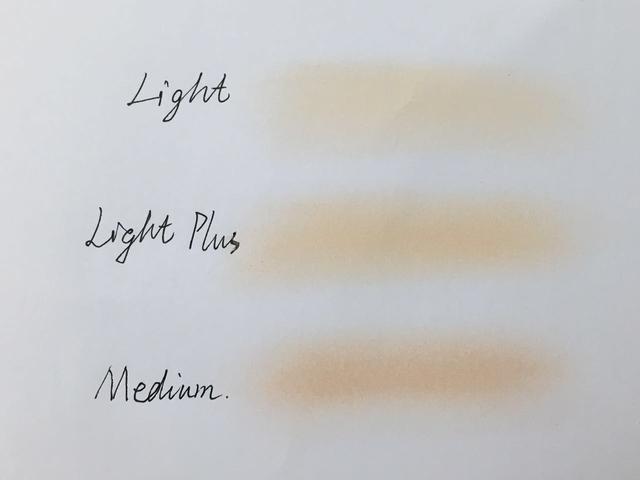 Light
Light Plus
Medium.